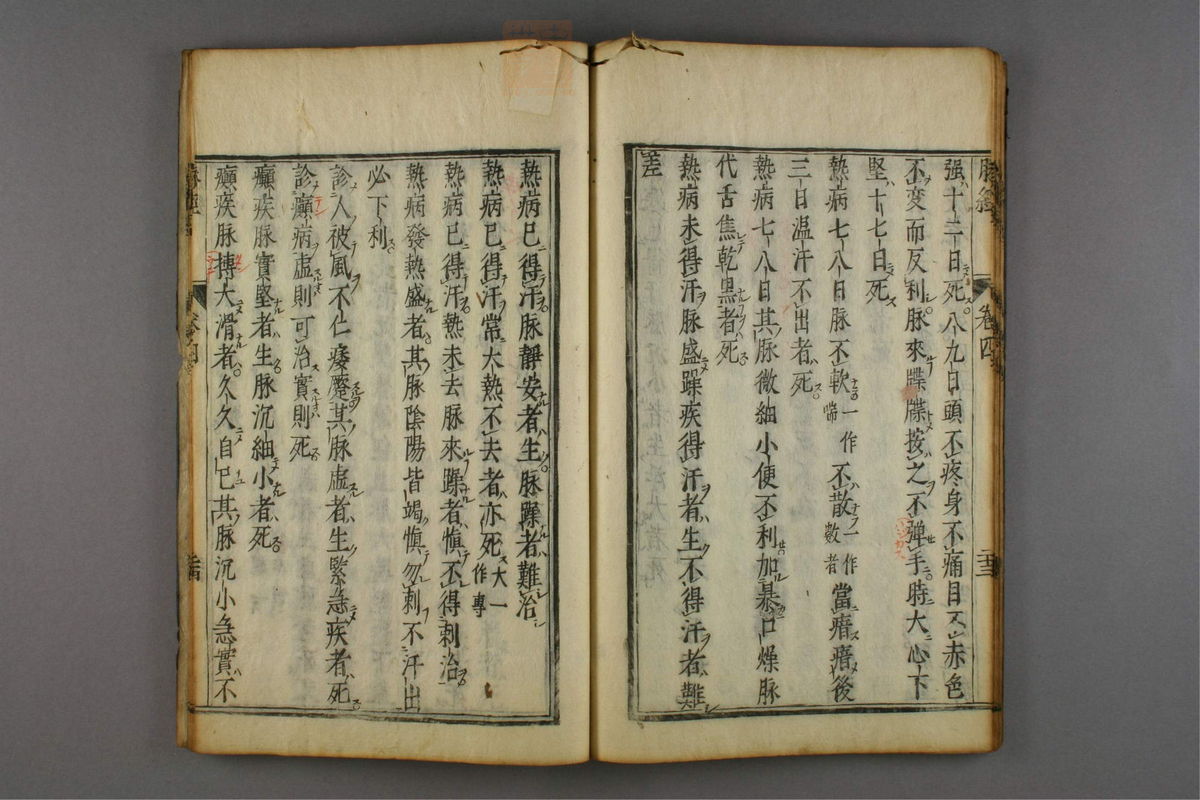 脉經 卷四 二十三
强十二日死八九日頭不疼身不痛目不赤色
不變而反利脉來牒牒按之不彈手時大心下
堅十七日死
熱病七八日脉不軟一作喘不散一作數者當瘖瘖後
三日温汗不出者死
熱病七八日其脉微細小便不利加暴口燥脉
代舌焦乾黒者死
熱病未得汗脉盛躁疾得汗者生不得汗者難
差
熱病已得汗脉靜安者生脉躁者難治
熱病已得汗常大熱不去者亦死大一作專
熱病已得汗熱未去脉來躁者慎不得刺治
熱病發熱盛者其脉陰陽皆竭慎勿刺不汗出
必下利
診人被風不仁痿蹷其脉虚者生緊急疾者死
診癲病虚則可治實則死
癲疾脉實堅者生脉沉細小者死
癲疾脉搏大滑者久久自已其脉沉小急實不
卷四